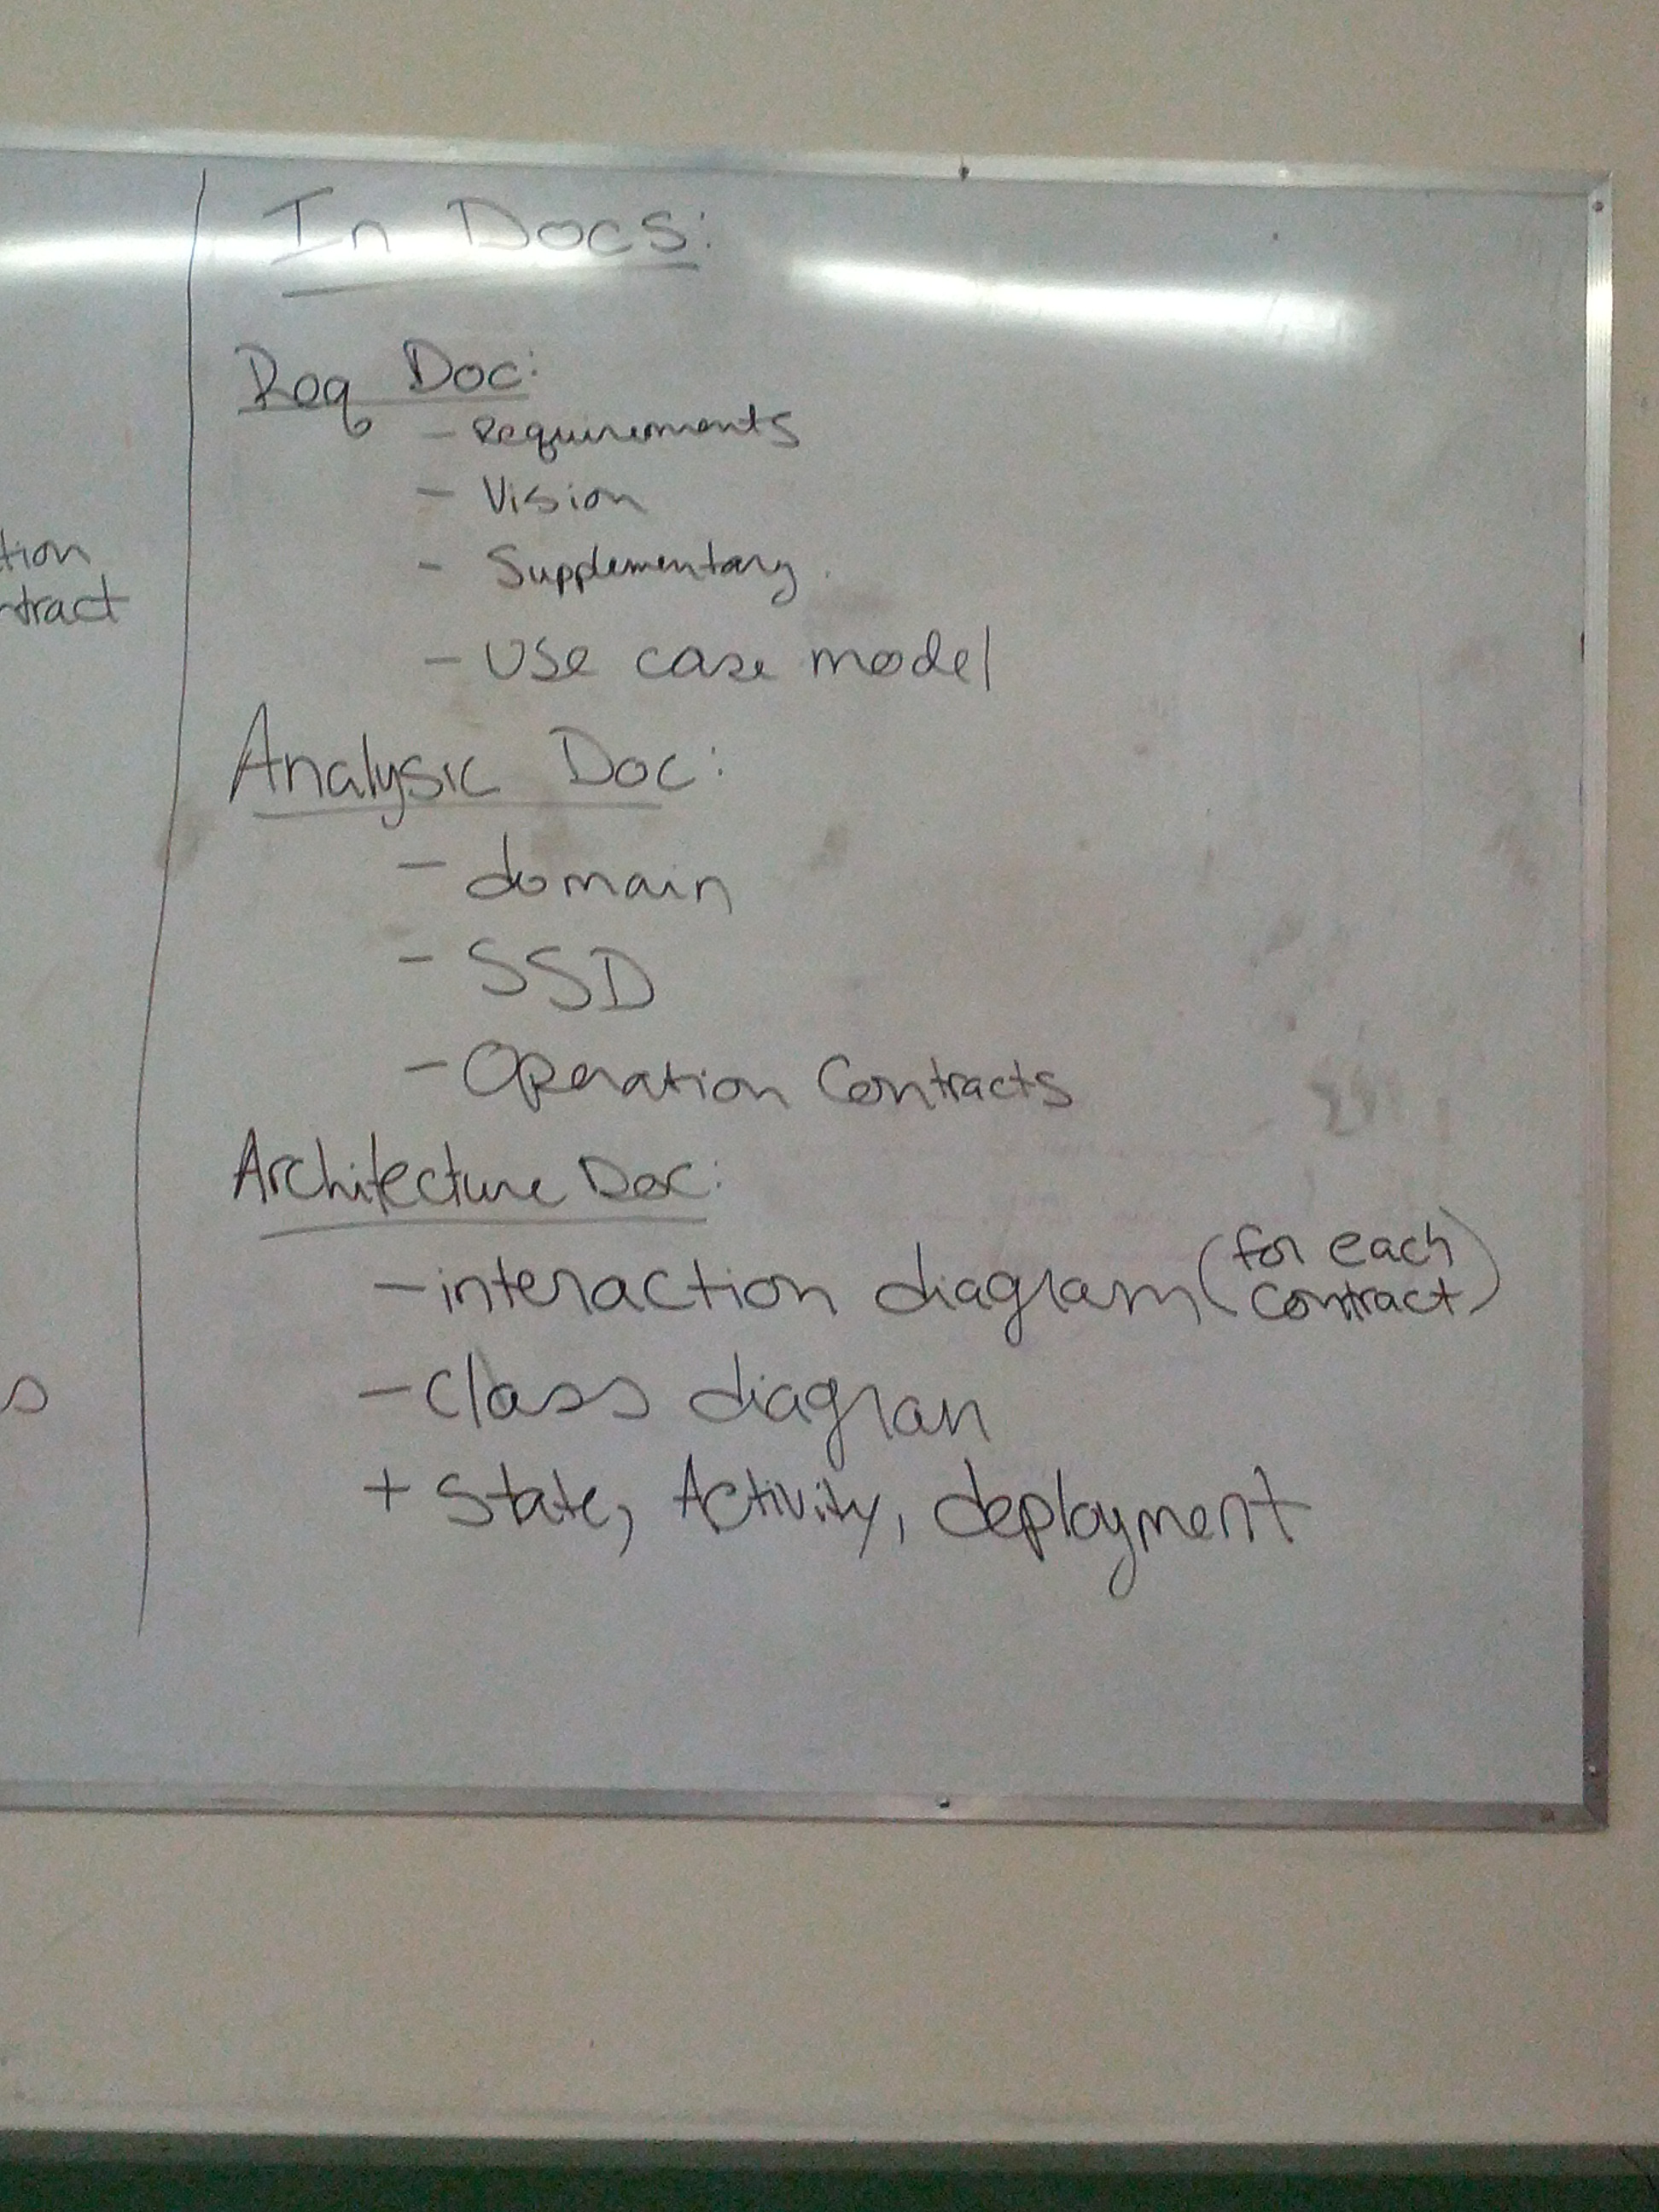 In Docs:
Req Doc:
- Requirements
- Vision
- Supplementary
- Use case model
Analysis Doc:
- domain
- SSD
- Operation Contracts
Architecture Doc:
- interaction diagram (for each contract)
- class diagram
+ State, Activity, deployment
tion
ntract
s